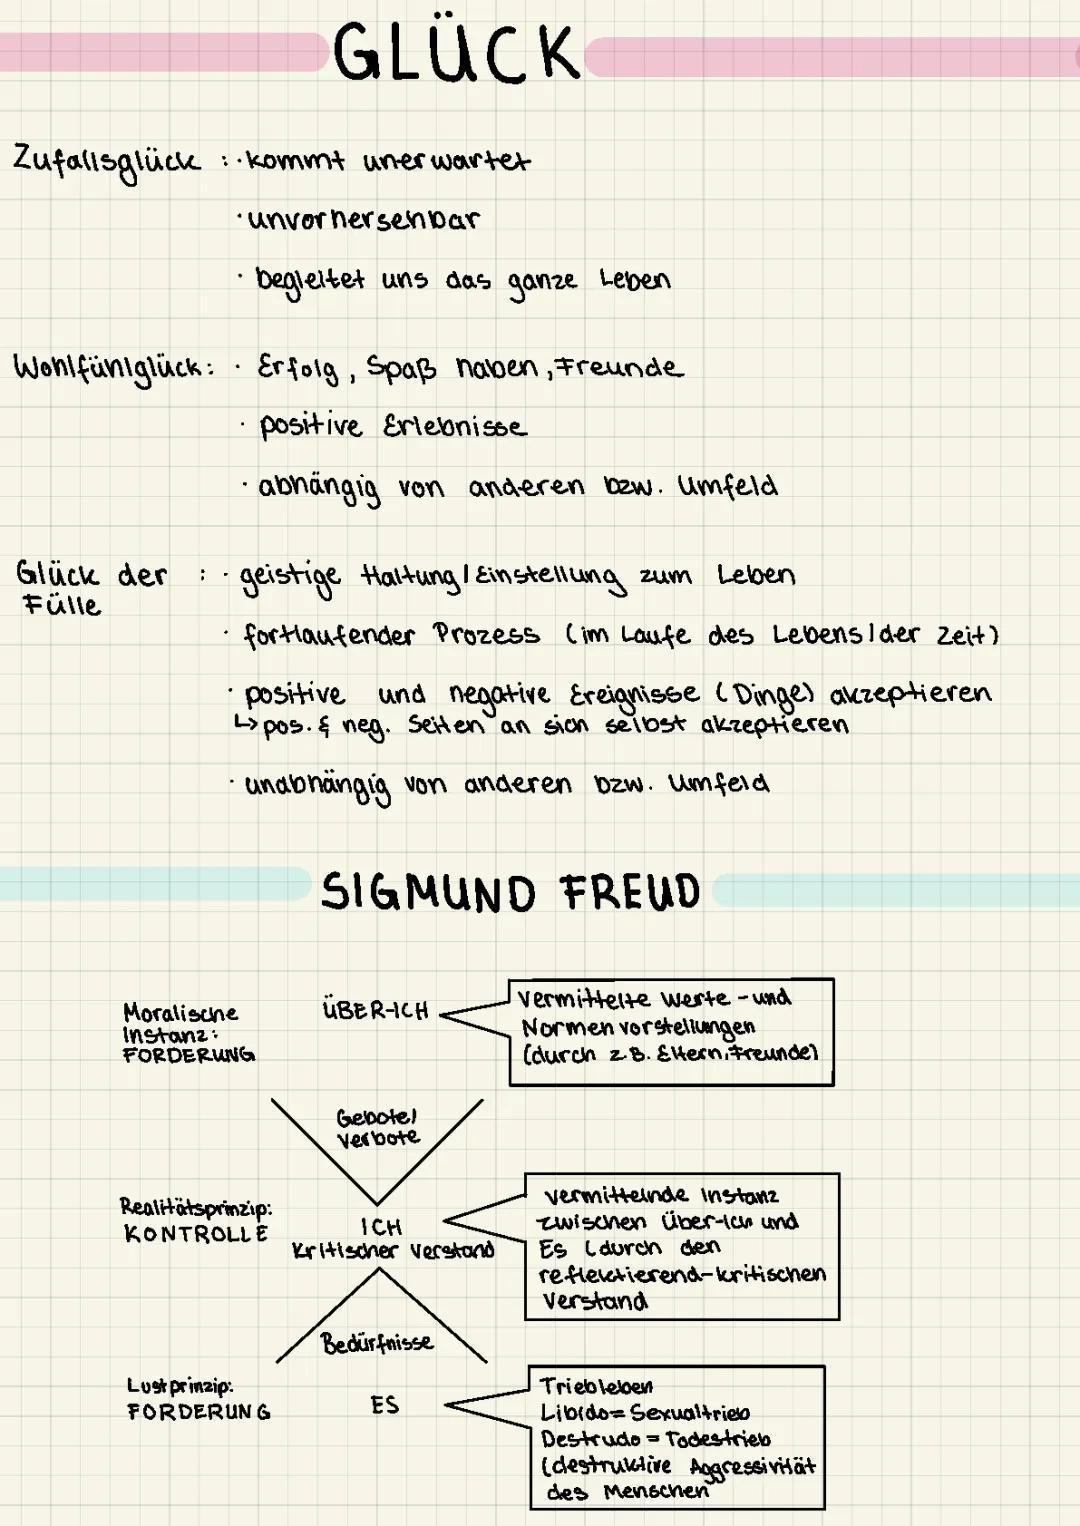 GLÜCK
Zufallsglück : · kommt unerwartet
· unvorhersehbar
· begleitet uns das ganze Leben
Wohlfühlglück: · Erfolg, Spaß haben, Freunde
· positive Erlebnisse
· abhängig von anderen bzw. Umfeld
Glück der Fülle : · geistige Haltung/Einstellung zum Leben
· fortlaufender Prozess (im Laufe des Lebens/der Zeit)
· positive und negative Ereignisse (Dinge) akzeptieren
↳ pos. & neg. Seiten an sich selbst akzeptieren
· unabhängig von anderen bzw. Umfeld
SIGMUND FREUD
Moralische
Instanz:
FORDERUNG
ÜBER-ICH
vermittelte Werte-und
Normenvorstellungen
(durch z.B. Eltern, Freunde)
Gebote/
Verbote
Realitätsprinzip:
KONTROLLE
ICH
Kritischer Verstand
vermittelnde Instanz
zwischen Über-Ich und
Es (durch den
reflektierend-kritischen
Verstand
Bedürfnisse
Lustprinzip:
FORDERUNG
ES
Triebleben
Libido = Sexualtrieb
Destrudo = Todestrieb
(destruktive Aggressivität
des Menschen